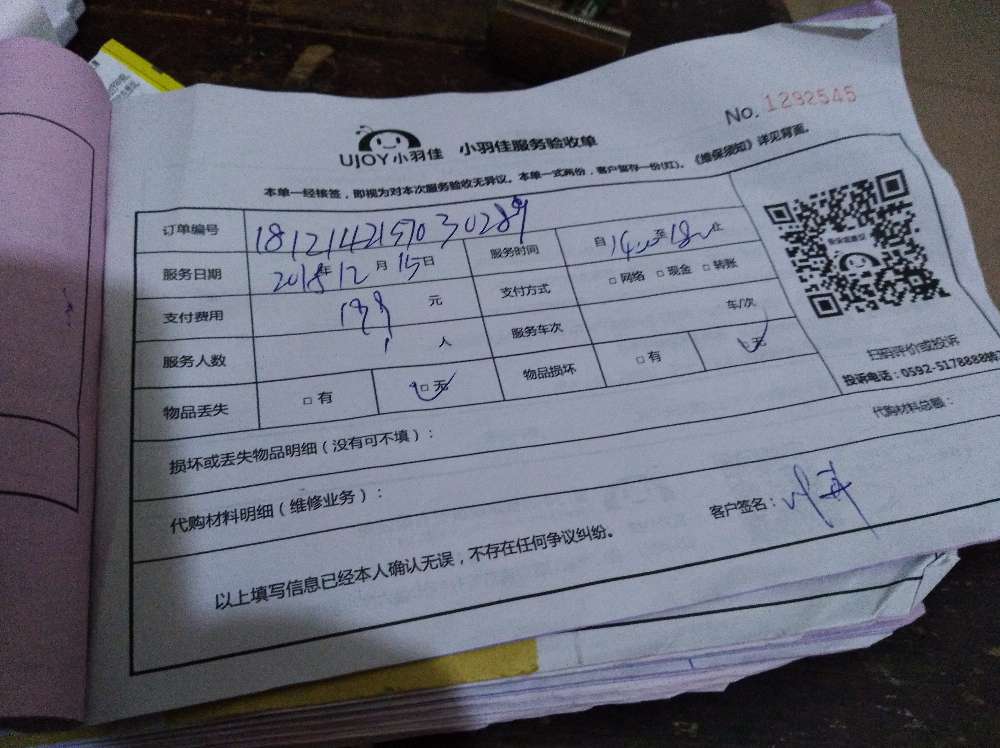 No. 1292545
UJOY小羽佳 小羽佳服务验收单
本单一经接签，即视为对本次服务验收无异议。本单一式两份，客户暂存一份(红)。《维保须知》详见背面。
订单编号 181214215703 0289
服务日期 2018年12月15日 服务时间 自14:00至18:00止
支付费用 元 支付方式 □网络 □现金 □转账
服务人数 1 人 服务车次 车/次
物品丢失 □有 □无 物品损坏 □有 □无
扫码评价或投诉
投诉电话：0592-5178888转
损坏或丢失物品明细（没有可不填）：
代购材料明细（维修业务）： 代购材料总额：
以上填写信息已经本人确认无误，不存在任何争议纠纷。 客户签名：